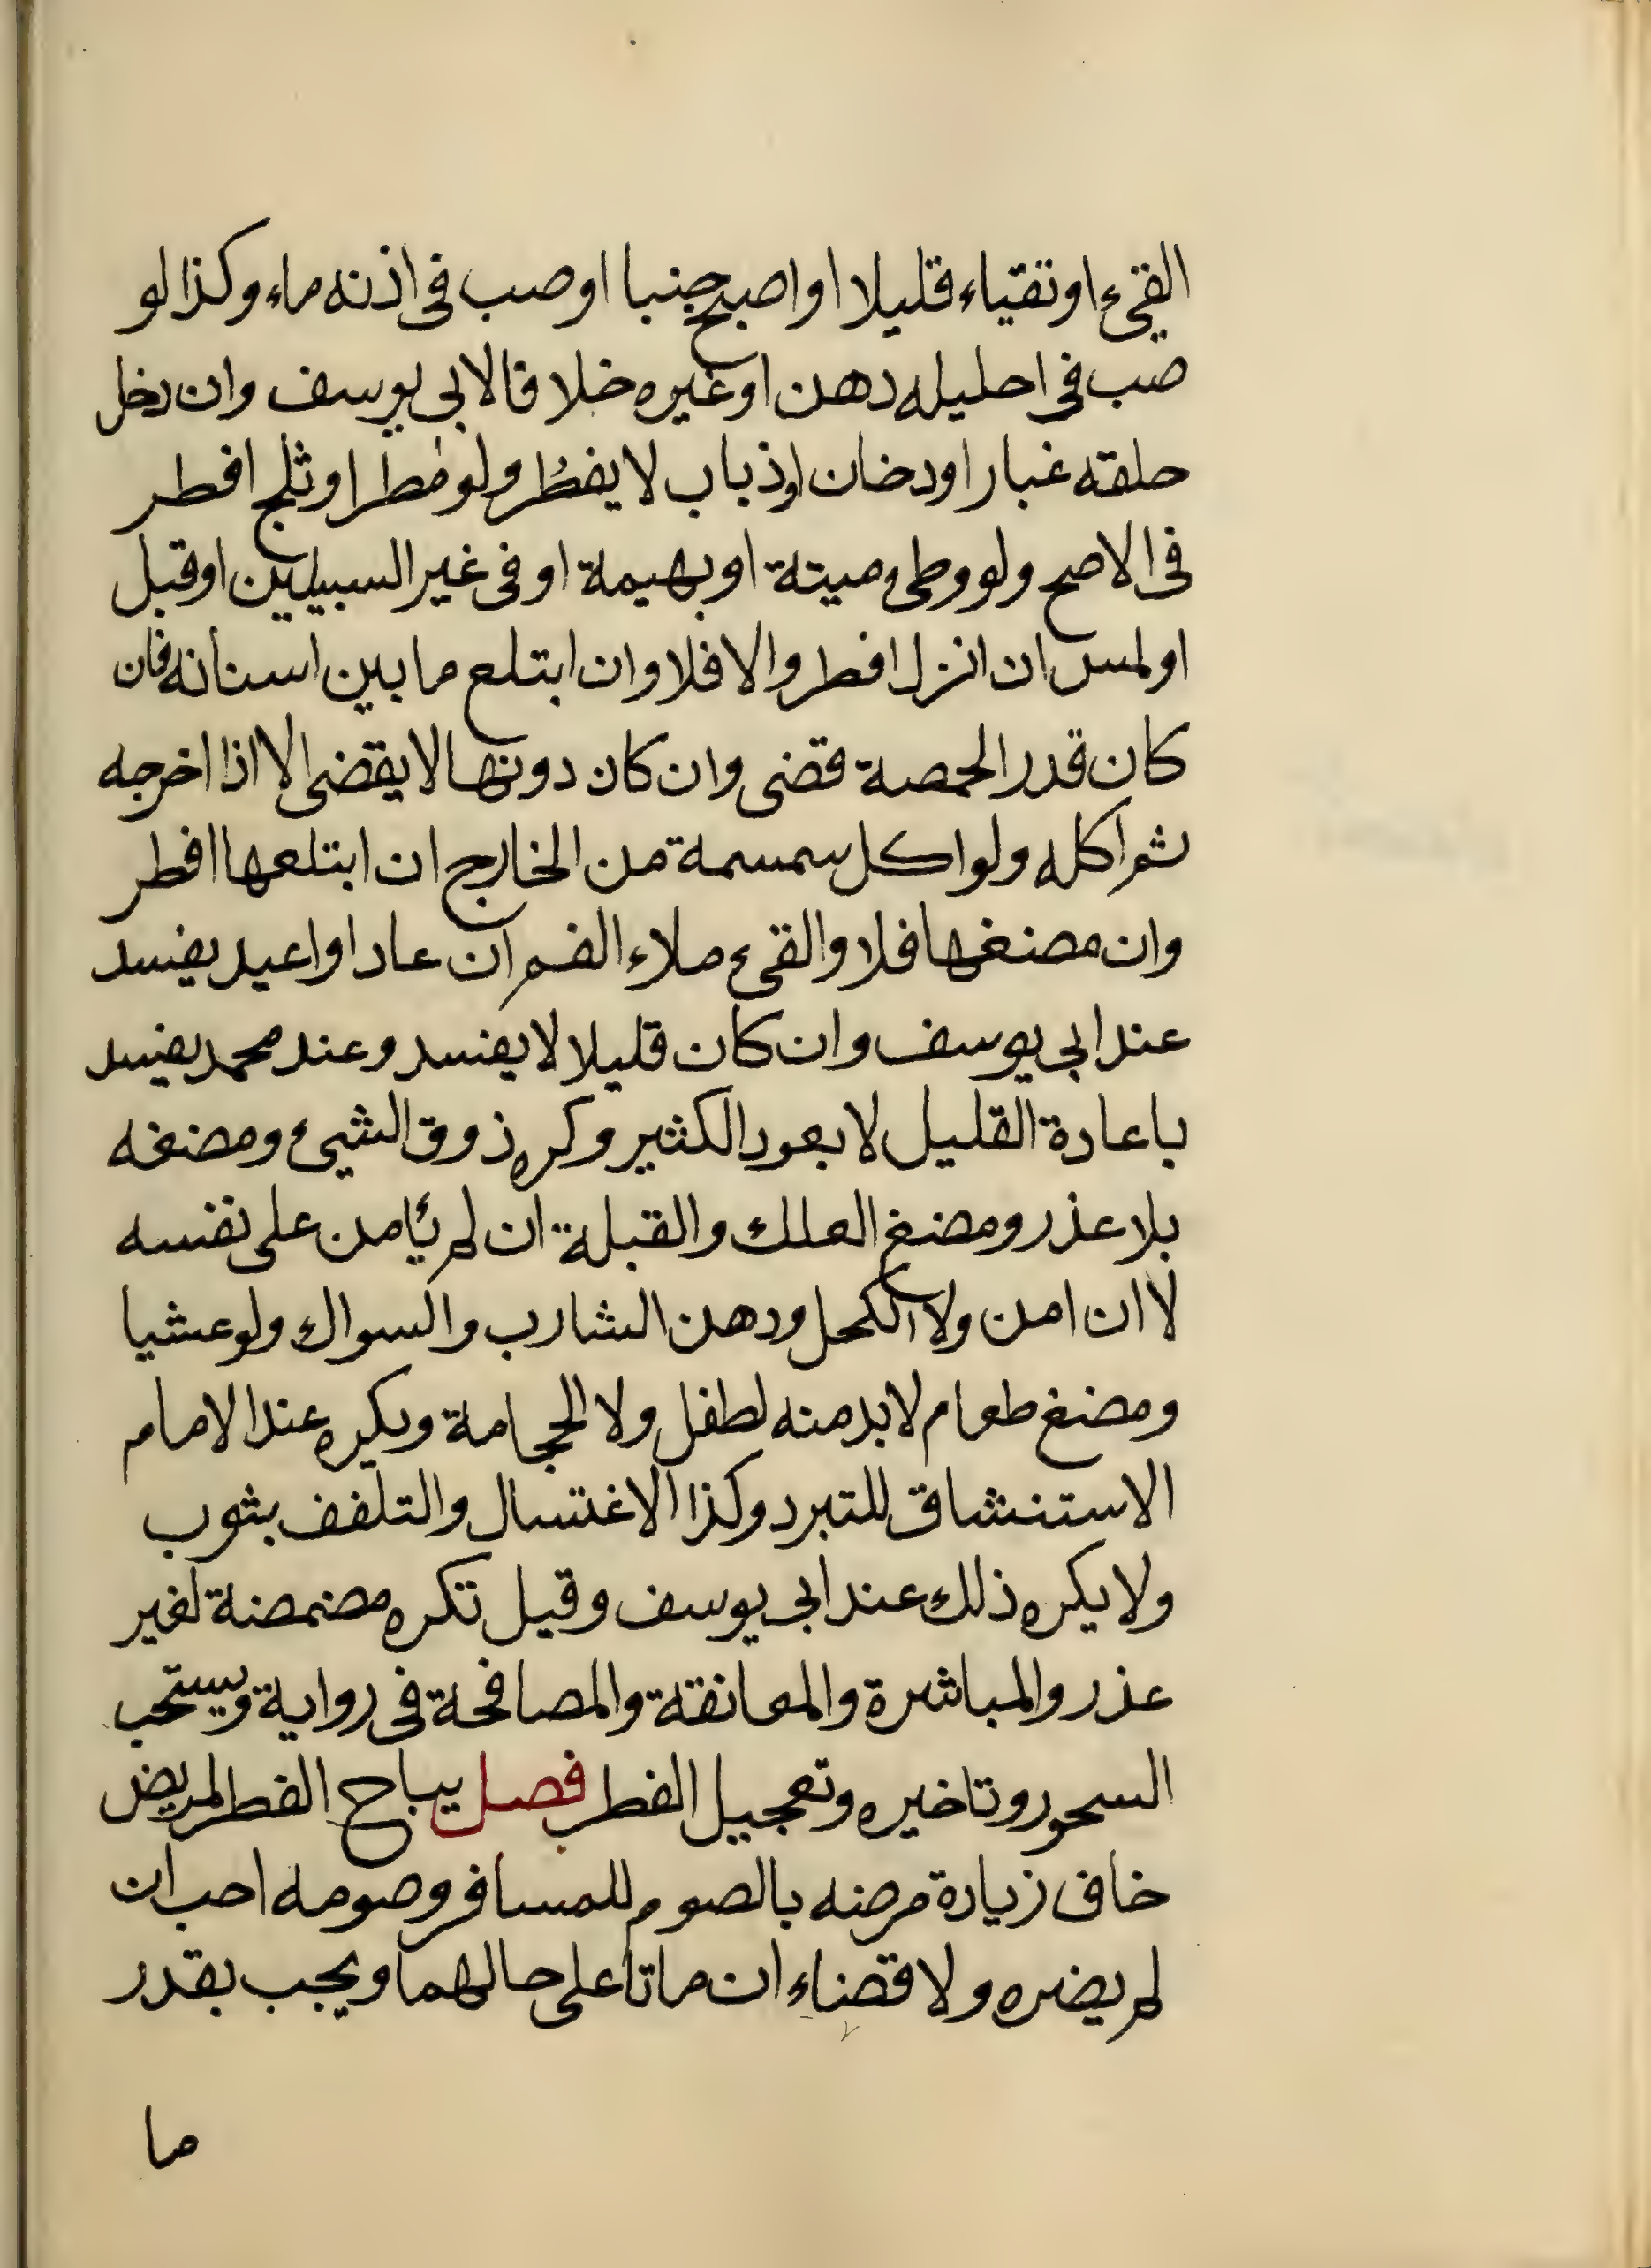 القيء او تقياء قليلا او اصبح جنبا او صب في اذنه ماء وكذا لو
صب في احليله دهن او غيره خلافا لابي يوسف وان دخل
حلقه غبار او دخان او ذباب لا يفطر ولو مطر او ثلج افطر
في الاصح ولو وطىء ميتة او بهيمة او في غير السبيلين او قبل
او لمس ان انزل افطر والا فلا وان ابتلع ما بين اسنانه فان
كان قدر الحمصة قضى وان كان دونها لا يقضى الا اذا اخرجه
ثم اكله ولو اكل سمسمة من الخارج ان ابتلعها افطر
وان مضغها فلا والقيء ملاء الفم ان عاد او اعيد يفسد
عند ابي يوسف وان كان قليلا لا يفسد وعند محمد يفسد
باعادة القليل لا بعود الكثير وكره ذوق الشيء ومضغه
بلا عذر ومضغ العلك والقبلة ان لم يئامن على نفسه
لا ان امن ولا الكحل ودهن الشارب والسواك ولو عشيا
ومضغ طعام لا بد منه لطفل ولا الحجامة ويكره عند الامام
الاستنشاق للتبرد وكذا الاغتسال والتلفف بثوب
ولا يكره ذلك عند ابي يوسف وقيل تكره مضمضة لغير
عذر والمباشرة والمعانقة والمصافحة في رواية ويستحب
السحور وتاخيره وتعجيل الفطر فصل يباح الفطر لمريض
خاف زيادة مرضه بالصوم للمسافر وصومه احب ان
لم يضره ولا قضاء ان ماتا على حالهما ويجب بقدر
ما